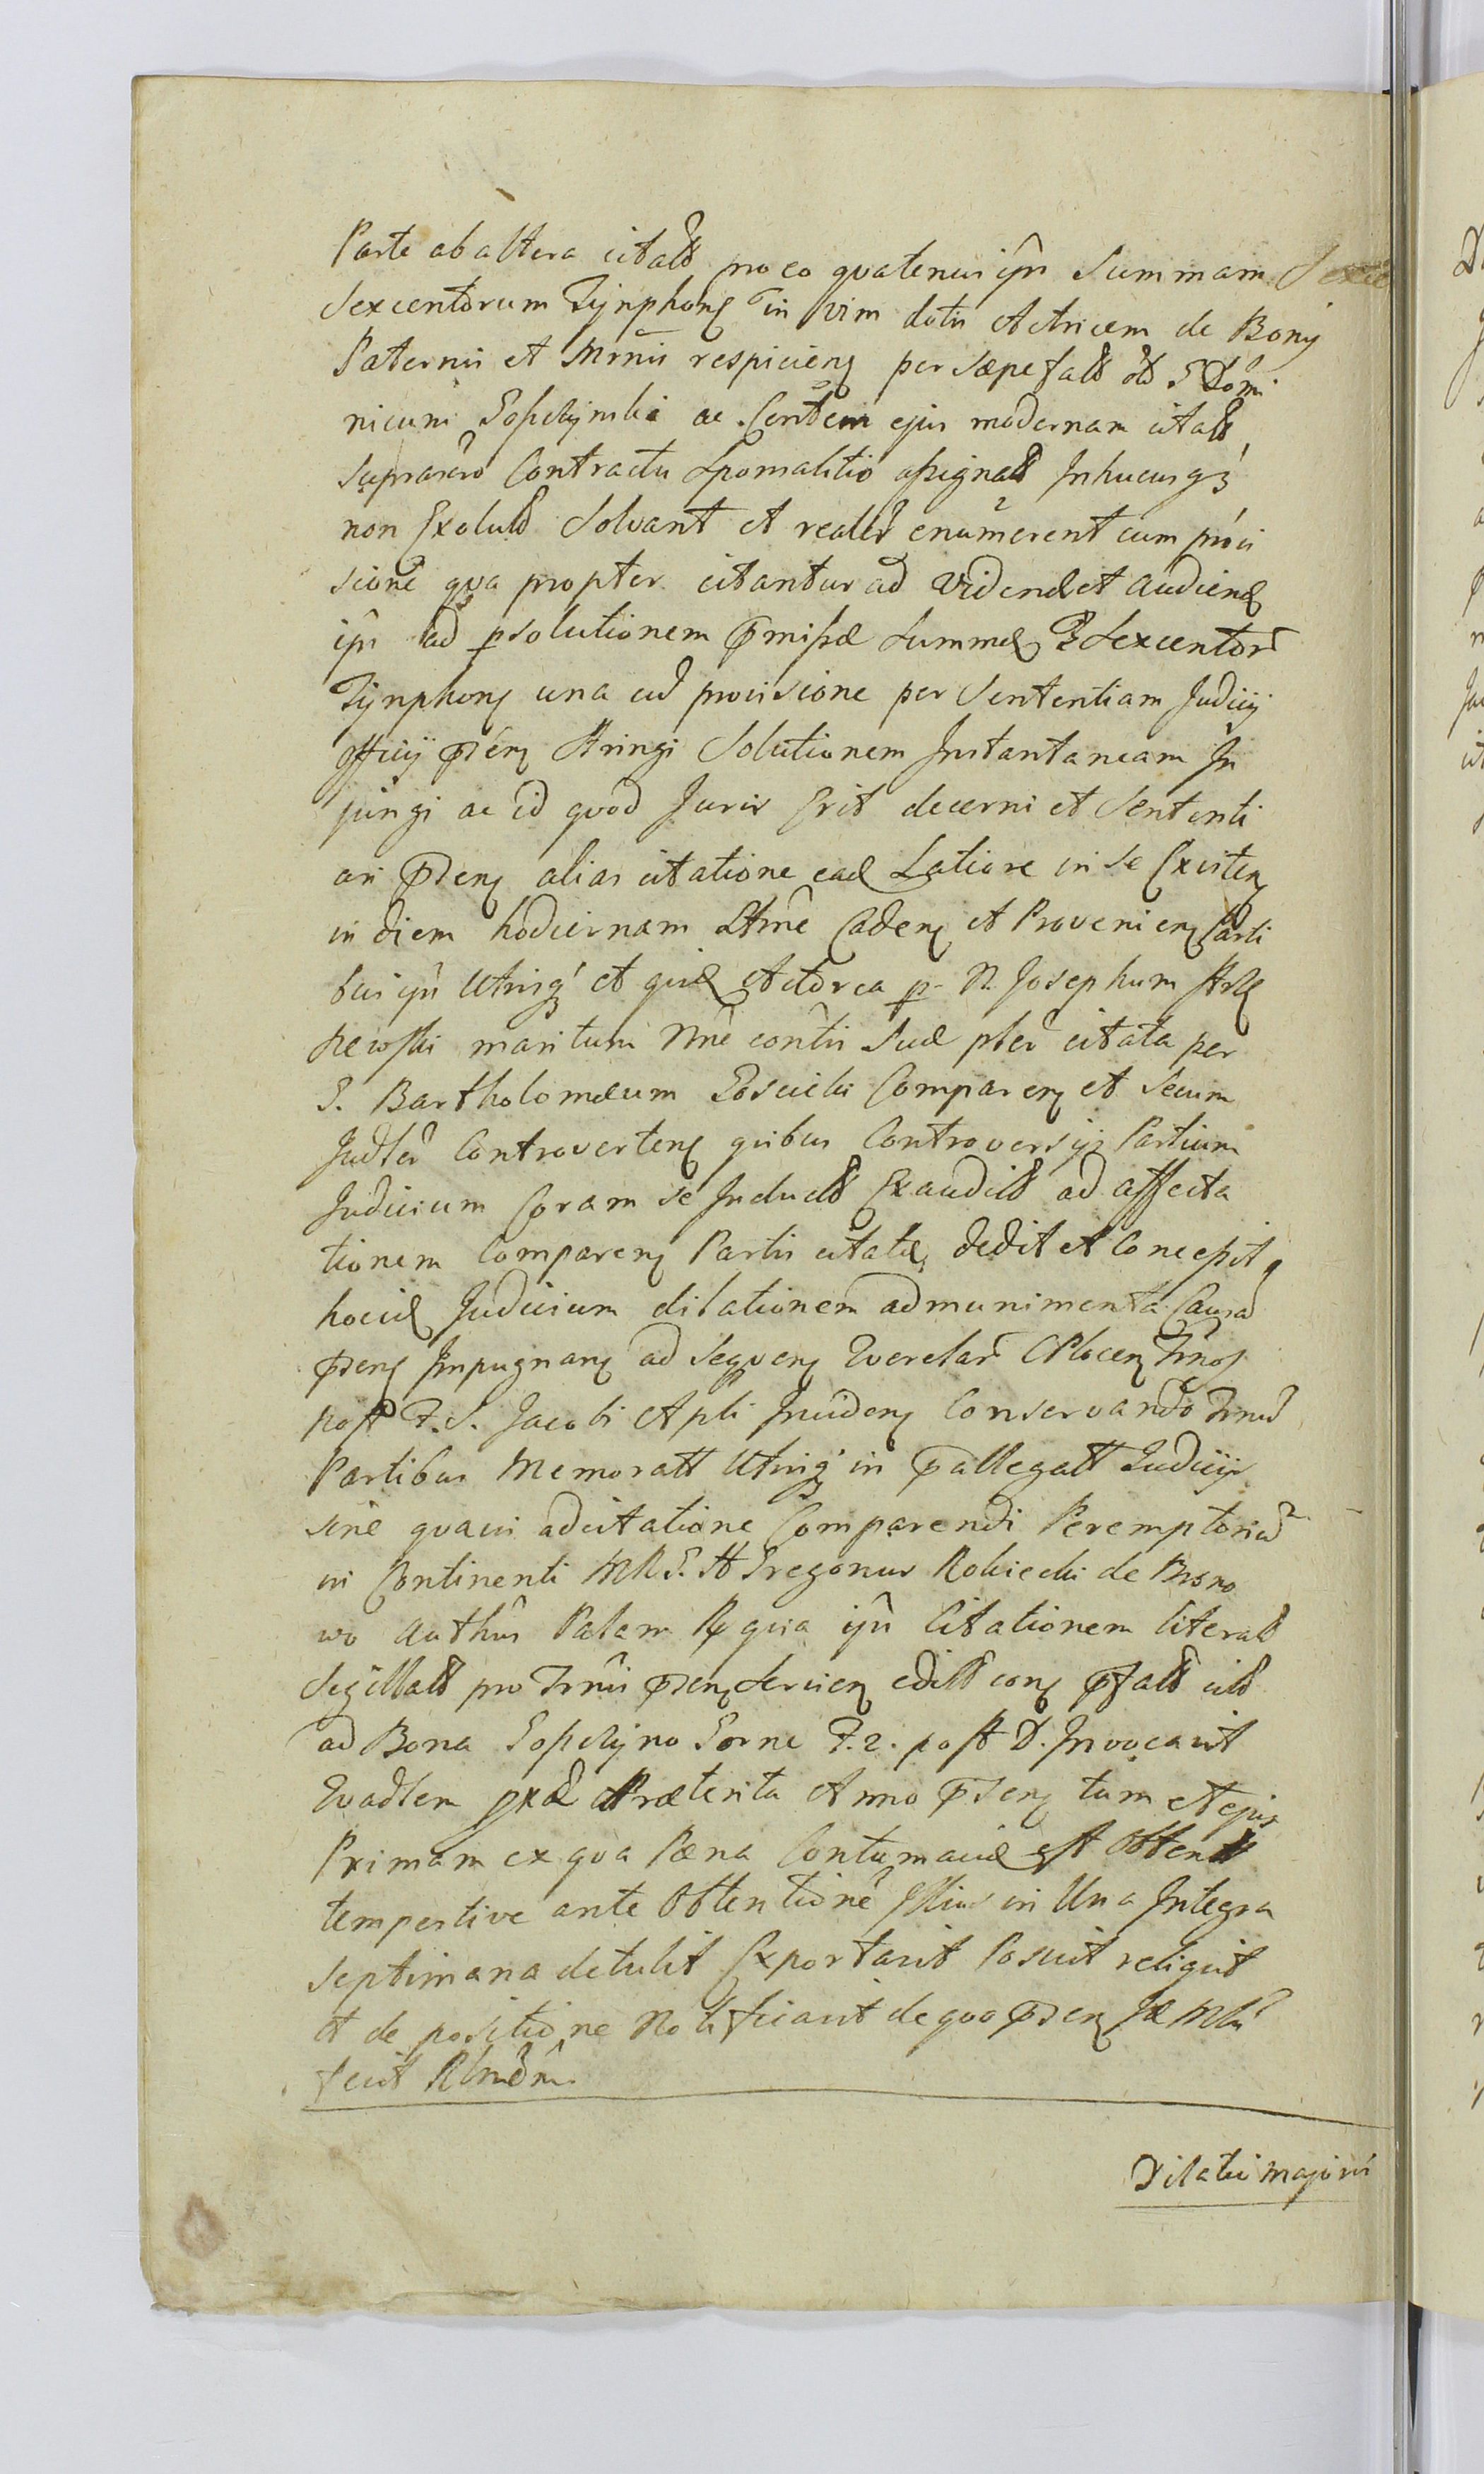 Parte ab altera citatt pro eo quatenus ipsi Summam
Sexcentorum Tynphonę in vim dotis Actricem de Bonis
Paternis et Mrnis respicienę per sæpefatt olt G Domi
nicum ac Contem ejus modernam citatt
Contractu Spomalitio assignatt Inhucusqʒ
non Exolutt Solvant et realr enumerent cum provi
sione qva propter citantur ad Videndę et audiendę
ipsi ad psolutionem pmissæ Summæ Sexcentor
Tynphonę una cum provisione per Sententiam Judicij
Officij psenę Stringi Solutionem Instantaneam In
jungi ac id qvod Juris Erit decerni et Sententi
ari psenę alias citatione ead Latiore in se Existenę
in diem hodiernam Cadenę et Provenienę Parti
bus ipis Utrisqʒ et qvid Actorea p N. Josephum
maritum Nne contis Suæ pter citata per
G. Bartholomæum Comparenę et Secum
Judler Controvertenę quibus Controversijs Partium
Judicium Coram se Inductt Exauditt ad affecta
tionem Comparenę Partis citatæ dedit et Concessit
Judicium dilationem ad munimenta Causæ
psenę Impugnanę ad Seqvenę Qverelar Plocenę Trnos
post F. S. Jacobi Apli Incidenę Conservando Trnũ
Partibus Memoratt Utrisqʒ in pallegatt Judicijs
sine qvavis adcitatione Comparendi Peremptoriũ
in Continenti MRG. H Gregorius de
wo Authûs Palam Rx quia ipse Citationem literatt
Sigillatt pro Trnis psenę Servienę editt conę pfatt citt
ad Bona Gorne F. 2. post D. Invocavit
Qvadlem pxæ Præterita Anno psenę tum Ejus
Primam ex qva Pæna Contumaciæ est Obtentt
tempestive ante Obtentione Illius in Una Integra
septimana detulit Exportavit Posuit reliquit
et de positione Notificavit de quo psenę
fecit
Dilatis majoris